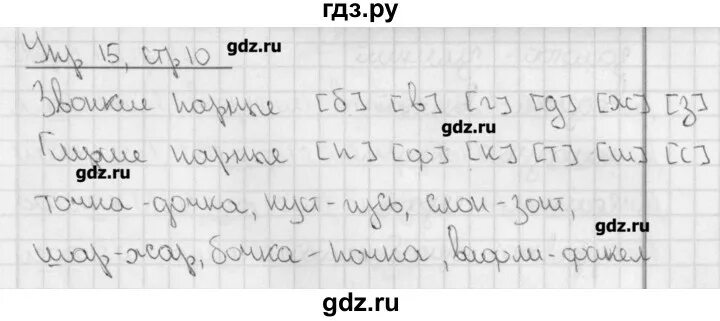 гдз.ру
Упр 15, стр 10
gdz.ru
Звонкие парные [б] [в] [г] [д] [ж] [з]
gdz.ru
Глухие парные [п] [ф] [к] [т] [ш] [с]
gdz.ru
точка - дочка, куст - гусь, слон - зонт,
gdz.ru
шар - жар, бочка - почка, вафли - факел
gdz.ru